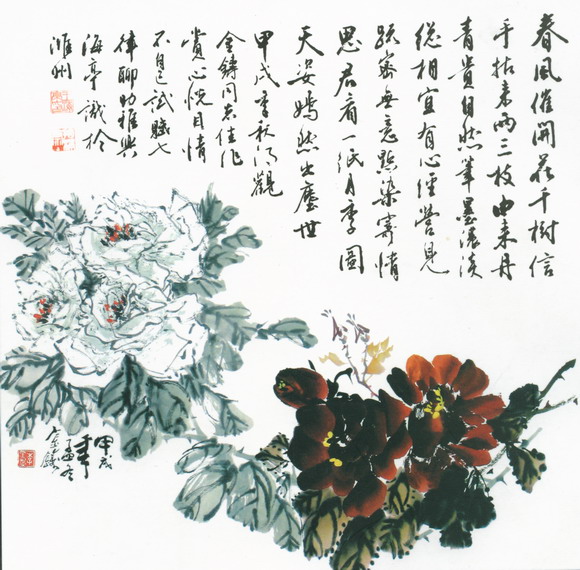 春風催開花千樹信
手拈来両三枝由来丹
青貴自然筆墨濃淡
總相宜有心經營見
疏密無意點染寄情
思君看一紙月季圖
天姿嫣然出塵世
甲戌季秋得觀
金鑄同志佳作
賞心悦目情
不自已試賦七
律聊助雅興
海亭識於
濰州
甲戌
年
孟冬
金鑄